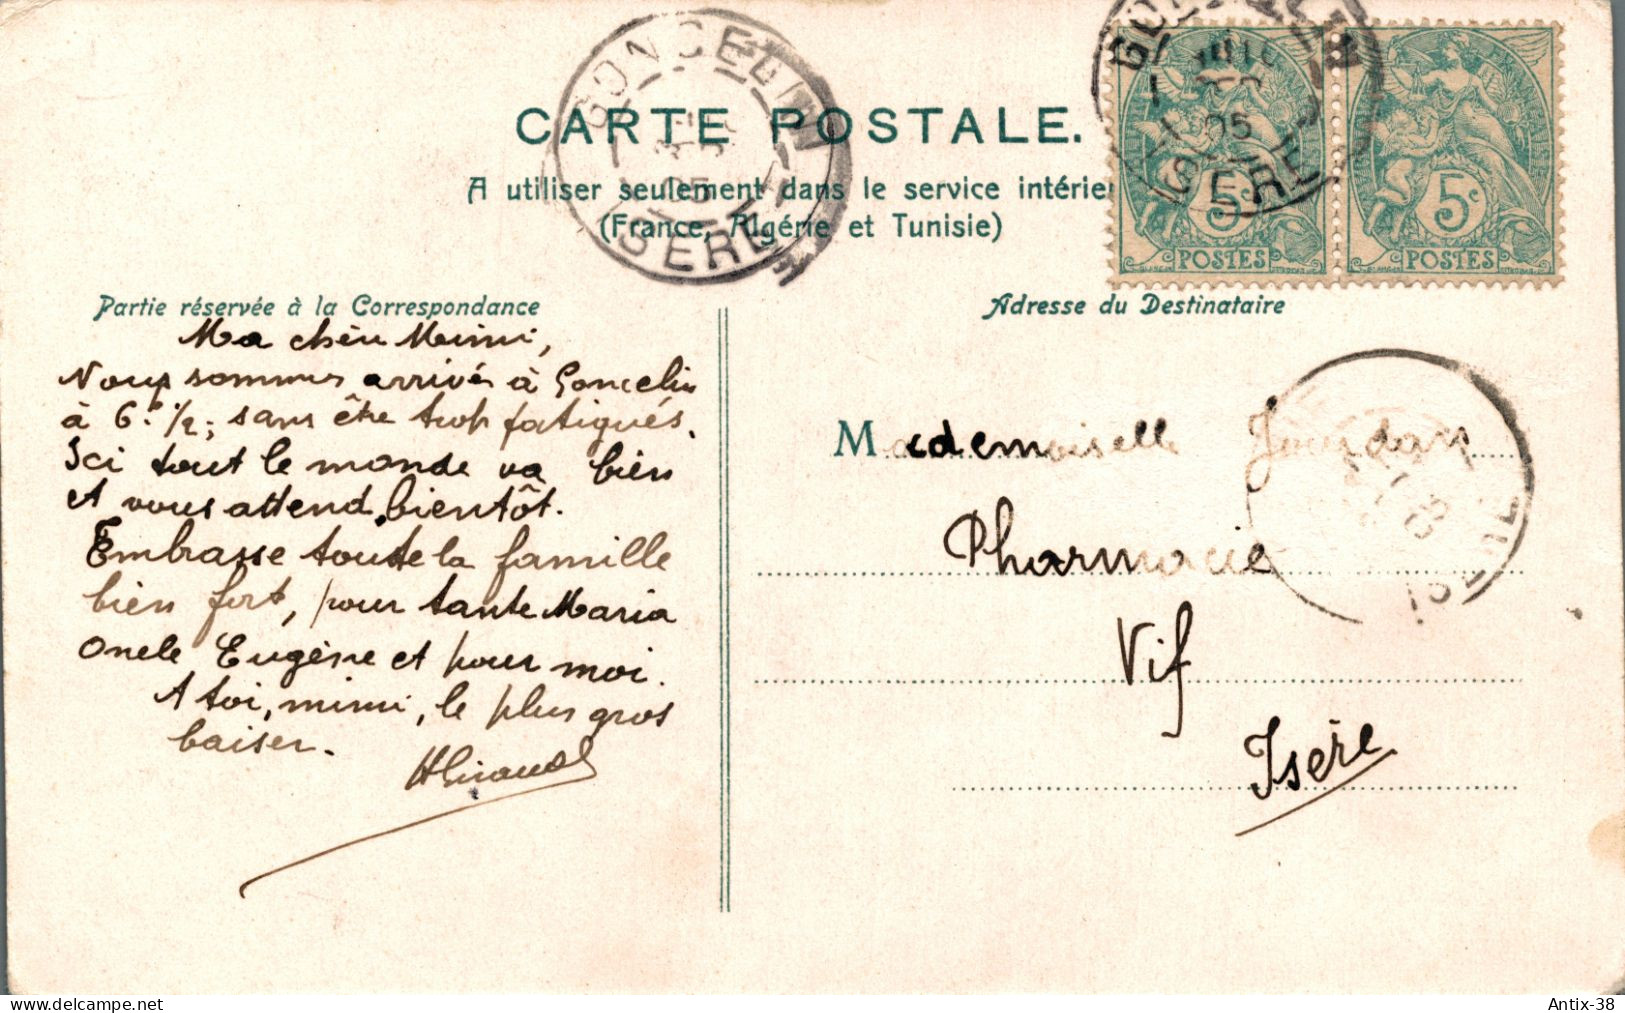 CARTE POSTALE.
A utiliser seulement dans le service intérieu
(France, Algérie et Tunisie)
GONCELIN
05
ISÈRE
05
ISÈRE
5c
POSTES
5c
POSTES
Partie réservée à la Correspondance
Ma chèr Mimi,
Nous sommes arrivés à Goncelin
à 6h 1/2; sans être trop fatigués.
Ici tout le monde va bien
et vous attend bientôt.
Embrasse toute la famille
bien fort, pour tante Maria
Oncle Eugène et pour moi.
A toi, mimi, le plus gros
baiser.
HGiraud
Adresse du Destinataire
Mademoiselle Jourdan
Pharmacie
Vif
Isère
Antix-38